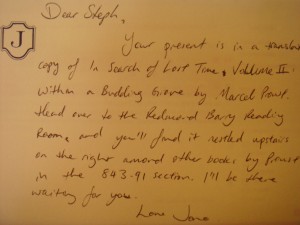 J
Dear Steph,
Your present is in a translated
copy of In Search of Lost Time, Volume II:
Within a Budding Grove by Marcel Proust.
Head over to the Redmond Barry Reading
Room, and you'll find it nestled upstairs
on the right among other books by Proust
in the 843.91 section. I'll be there
waiting for you.
Love Jane